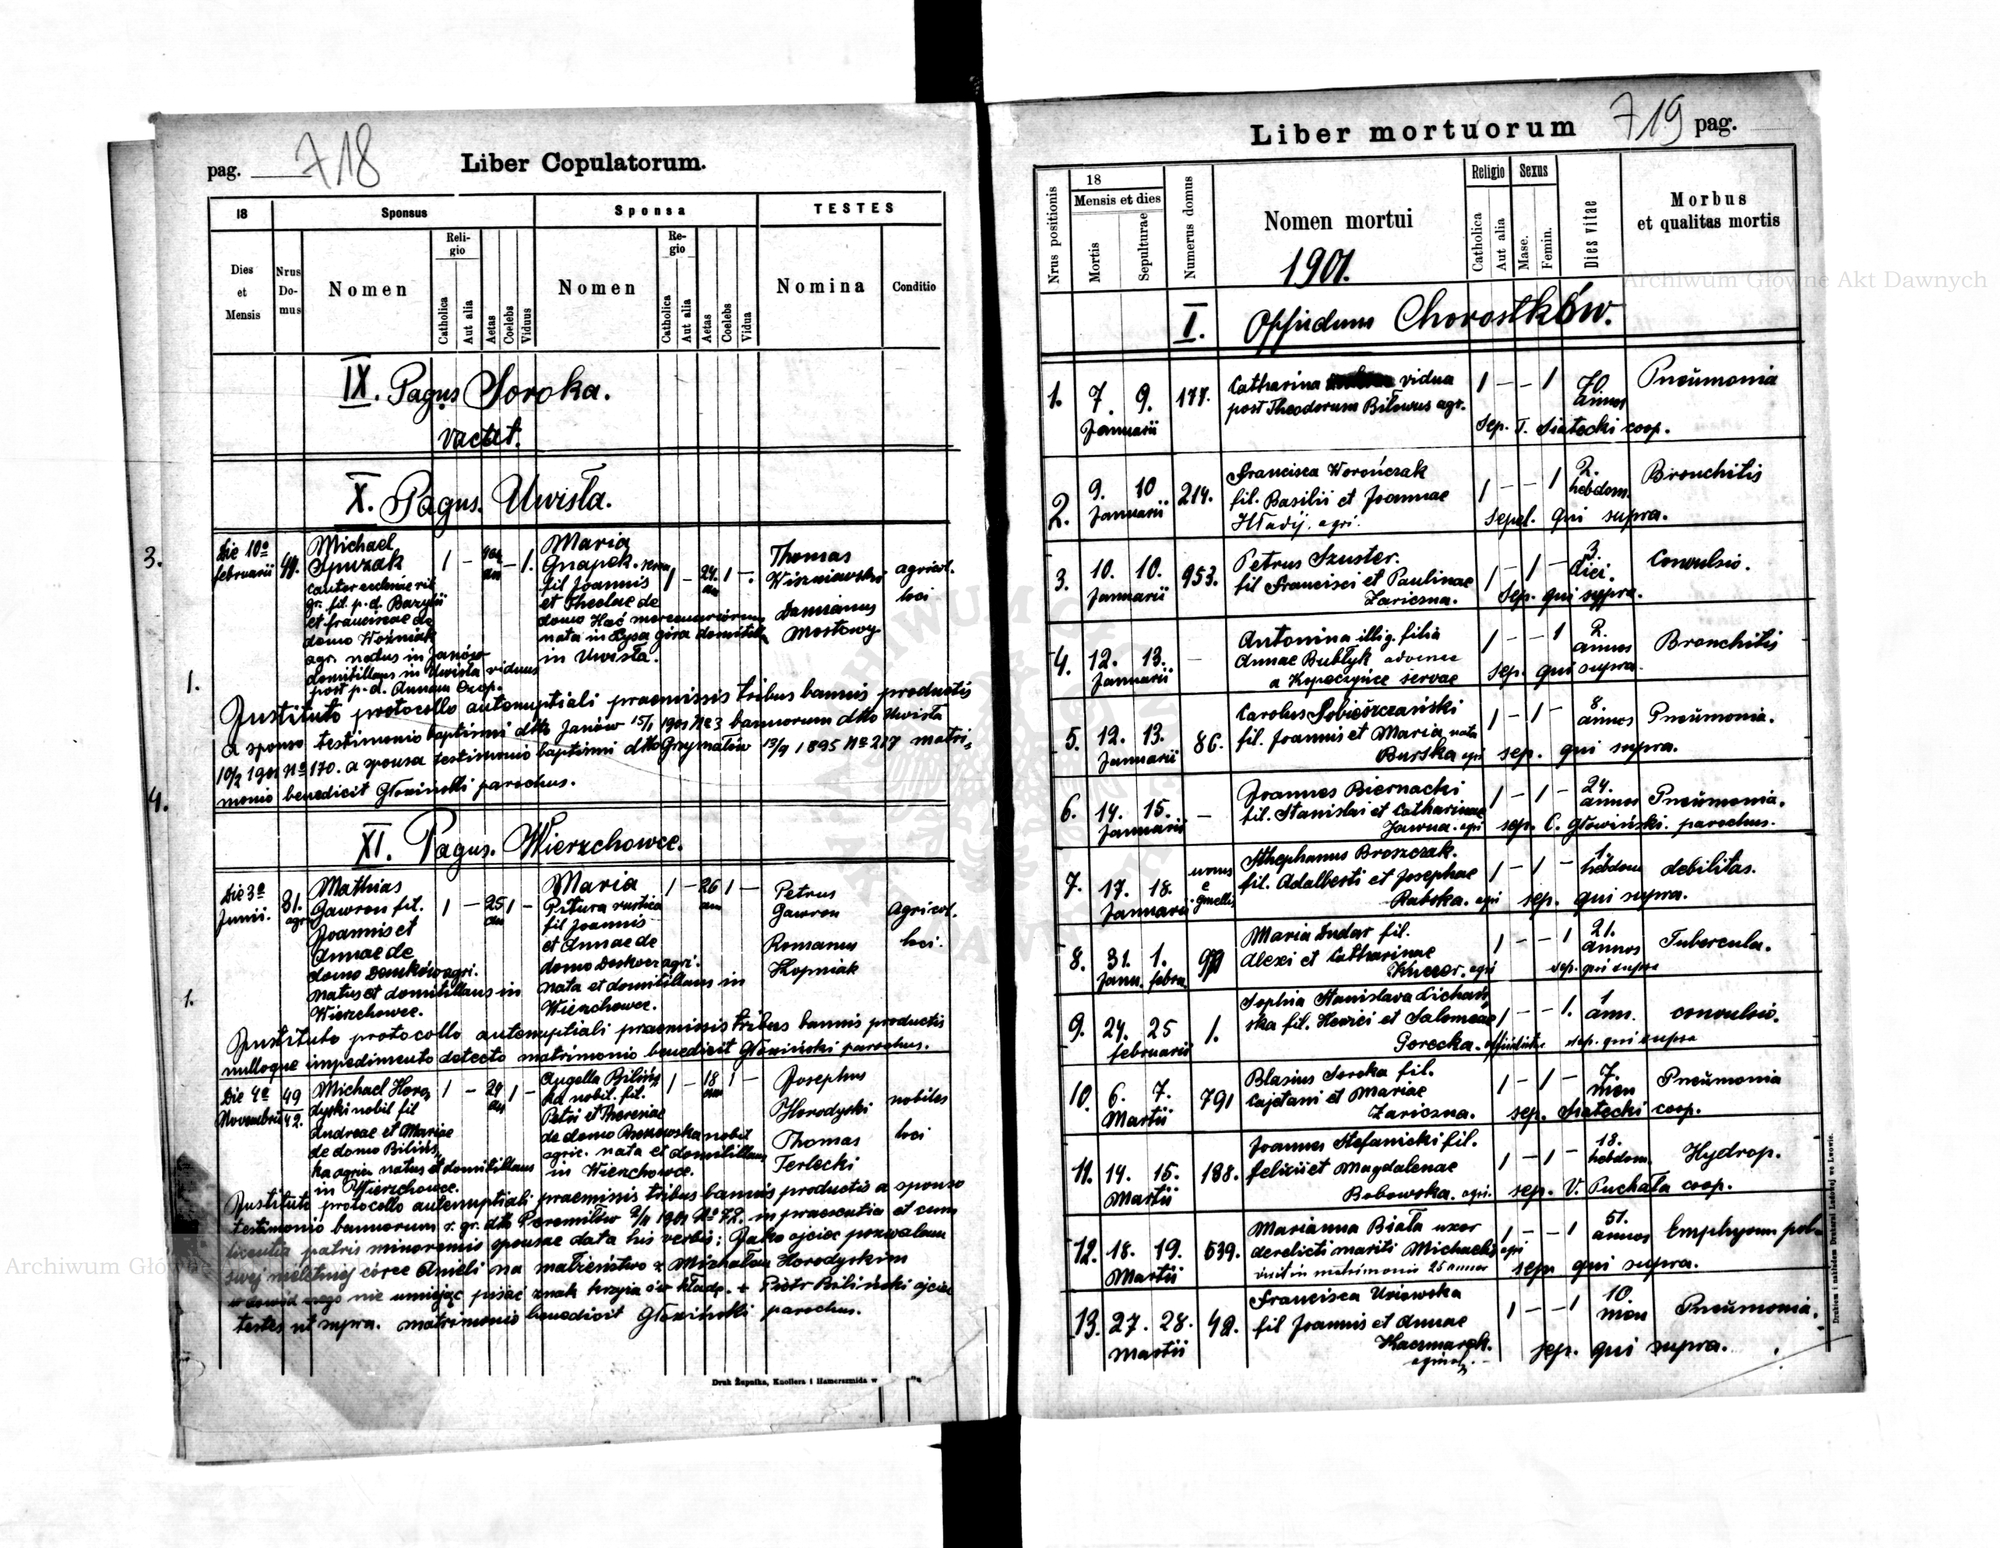 pag. 718
Liber Copulatorum.
18
Sponsus
Sponsa
TESTES
Dies et Mensis
Nrus Domus
Nomen
Religio
Catholica
Aut alia
Aetas
Coelebs
Viduus
Nomen
Religio
Catholica
Aut alia
Aetas
Coelebs
Vidua
Nomina
Conditio
IX. Pagus Soroka.
vacat.
X. Pagus. Uwisła.
3.
Die 10a
februarii
Michael
Spurzak
cantor ecclesiae rit
gr. fil. p. d. Bazylii
et franciscae de
domo Woźniak
agr. natus in Janów
domicilians in Uwisła viduus
post p. d. Annam
1 – – 1.
Maria
Gnapek
fil Joannis
et Theclae de
domo Hać mercenariorum
nata in Łysa góra
in Uwisła.
1 – 24. an
Thomas
Wiszniowski
Damianus
Mostowy
agricol.
loci
1.
Instituto protocollo antenuptiali praemissis tribus bannis productis
a sponso testimonio baptismi dtto Janów 15/1 1901 No 3 bannorum dtto Uwisła
10/2 1901 No 170. a sponsa testimonio baptismi dtto Grzymałów 19/9 1895 No 217 matri-
monio benedicit Głowiński parochus.
4.
XI. Pagus. Wierzchowce.
Die 3a
Junii.
81.
agr.
Mathias
Gawron fil.
Joannis et
Annae de
domo Demków agri.
natus et domicilians in
Wierzchowce.
1 – 25 an 1 –
Maria
Pitura rustica
fil Joannis
et Annae de
domo agri.
nata et domicilians in
Wierzchowce.
1 – 26 an 1 –
Petrus
Gawron
Romanus
Skopniak
Agricol.
loci.
1.
Instituto protocollo antenuptiali praemissis tribus bannis productis
nulloque impedimento detecto matrimonio benedicit Głowiński parochus.
Die 4a
Novembris
49
42.
Michael Horo-
dyski nobil fil
Andreae et Mariae
de domo Biliń-
ska agric. natus et domicilians
in Wierzchowce.
1 – 24 an 1 –
Angella Biliń-
ska nobil. fil.
Petri et Theresiae
de domo nobil
agric. nata et domicilians
in Wierzchowce.
1 – 18 an 1 –
Josephus
Horodyski
Thomas
Terlecki
nobiles
loci
Instituto protocollo antenuptiali praemissis tribus bannis productis a sponso
testimonio bannorum r. gr. dtto Peremiłów 2/11 1901 No 72. in praesentia et cum
licentia patris minorennis sponsae data his verbis: Jako ojciec pozwalam
swej nieletniej córce Anieli na małżeństwo z Michałem Horodyskim
w dowód czego nie umiejąc pisać znak krzyża św kładę. + Piotr Biliński ojciec
testes ut supra. matrimonio benedicit Głowiński parochus.
Druk Żupnika, Knollera i Hamerszmida w
Liber mortuorum 719 pag.
Nrus positionis
18
Mensis et dies
Mortis
Sepulturae
Numerus domus
Nomen mortui
1901.
Religio
Catholica
Aut alia
Sexus
Masc.
Femin.
Dies vitae
Morbus
et qualitas mortis
I. Oppidum Chorostków.
1. 7. 9. Januarii 177. Catharina vidua
post Theodorum Bilowus agr.
1 – – 1 70. annos Pneumonia
Sep. T. Siatecki coop.
2. 9. 10. Januarii 214. Francisca Worończak
fil. Basilii et Joannae
Hładij. agri.
1 – – 1 2. hebdom. Bronchitis
Sepel. qui supra.
3. 10. 10. Januarii 953. Petrus Szuster.
fil Francisci et Paulinae
Zariczna.
1 – 1 – 3. diei. Convulsio.
Sep. qui supra.
4. 12. 13. Januarii – Antonina illig. filia
Annae Bubłyk advenae
a Kopeczyńce servae
1 – – 1 2. annos Bronchitis
sep. qui supra.
5. 12. 13. Januarii 86. Carolus Sobieszczański
fil. Joannis et Maria nata
Burska agri
1 – 1 – 8. annos Pneumonia.
sep. qui supra.
6. 14. 15. Januarii – Joannes Biernacki
fil. Stanislai et Catharinae
Jawna. agri
1 – 1 – 24. annos Pneumonia.
sep. C. Głowiński. parochus.
7. 17. 18. Januarii unus e gmellis Sthephanus Broszczak.
fil. Adalberti et Josephae
Rabska. agri
1 – 1 – 1. hebdom debilitas.
sep. qui supra.
8. 31. 1. Janu. febru. Maria Dudar fil.
Alexi et Catharinae
Kuczer. agri
1 – – 1 21. annos Tubercula.
sep. qui supra
9. 24. 25 februarii 1. Sophia Stanislava Lichań-
ska fil. Henrici et Salomeae
Gorecka.
1 – – 1. 1 ann. convulsio.
sep. qui supra
10. 6. 7. Martii 791 Blasius Soroka fil.
Cajetani et Mariae
Zariczna.
1 – 1 – 7. men Pneumonia
sep. Siatecki coop.
11. 14. 15. Martii 188. Joannes Stefanicki fil.
Felicii et Magdalenae
Bobowska. agri.
1 – 1 – 18. hebdom. Hydrop.
sep. V. Puchała coop.
12. 18. 19. Martii 639. Marianna Biała uxor
derelicti mariti Michaelis agri
vixit in matrimonio 25 annos
1 – – 1 51. annos Emphysem pulm.
sep. qui supra.
13. 27. 28. Martii 42. Francisca Uniowska
fil Joannis et Annae
Kaczmarek.
agricol.
1 – – 1 10. men Pneumonia.
sep. qui supra.
Drukiem i nakładem Drukarni Ludowej we Lwowie.
Archiwum Główne Akt Dawnych
Archiwum Główne
ARCHIWUM GŁÓWNE AKT DAWNYCH